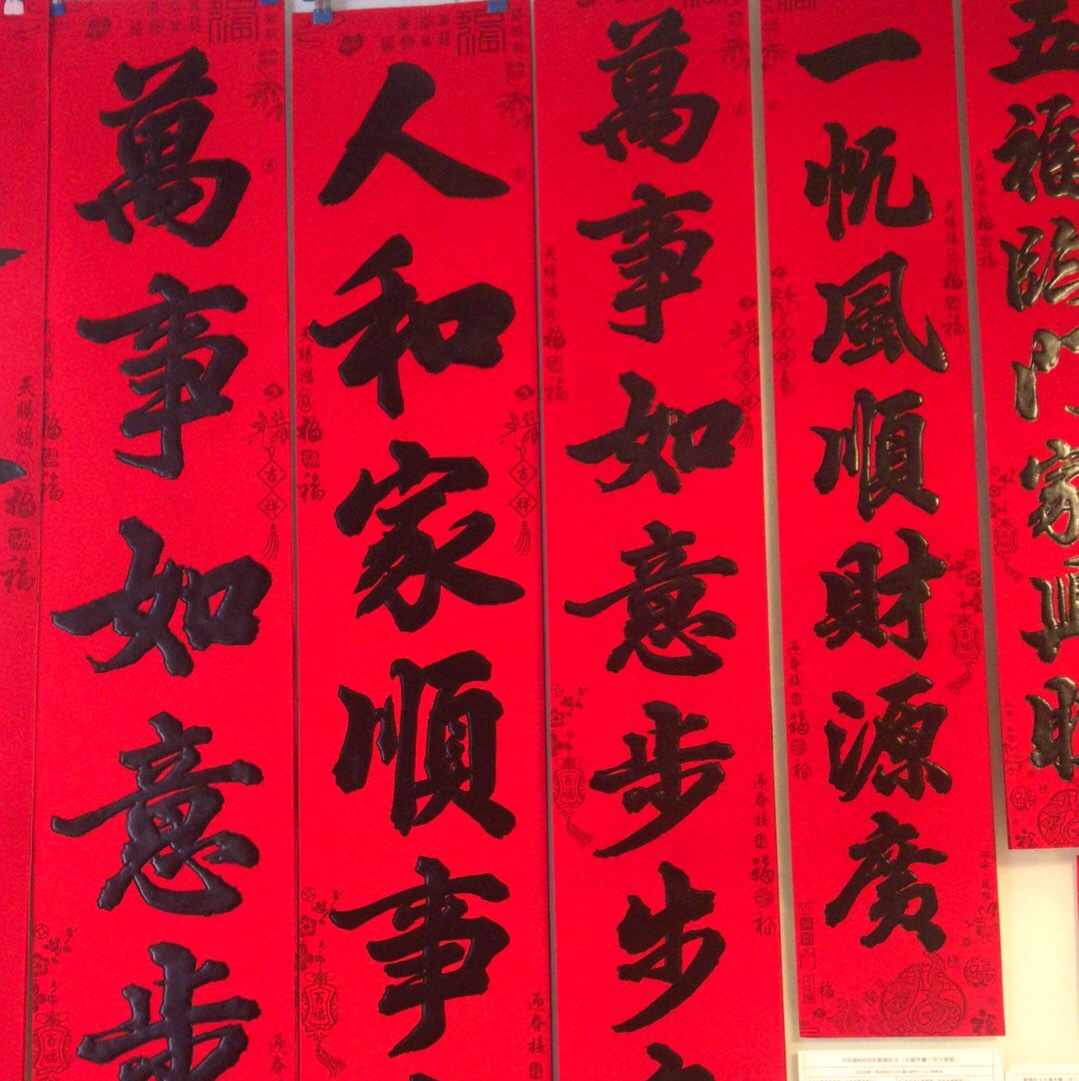 五福臨門家興財
一帆風順財源廣
萬事如意步步
人和家順事
萬事如意步
天賜鴻福
迎春接福
吉祥
百福